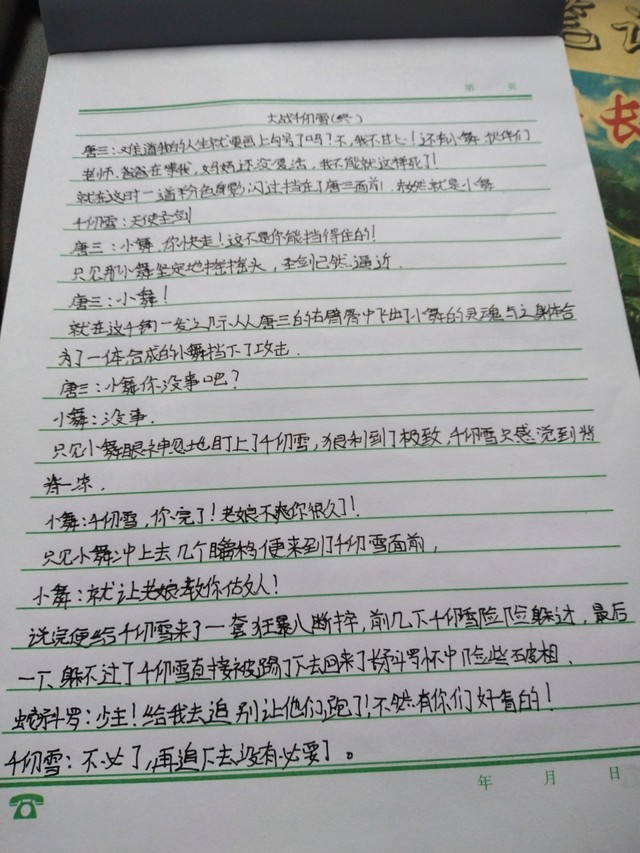 第 页
大战千仞雪(终)
唐三:难道我的人生就要画上句号了吗?不,我不甘心!还有小舞 伙伴们
老师 爸爸在等我,妈妈还没复活,我不能就这样死了!
就在这时一道粉色身影闪过挡在了唐三面前 赫然就是小舞
千仞雪:天使圣剑
唐三:小舞,你快走!这不是你能挡得住的!
只见那小舞坚定地摇摇头,圣剑已然逼近.
唐三:小舞!
就在这千钧一发之际从唐三的右臂骨中飞出了小舞的灵魂与之身体合
为了一体合成的小舞挡下了攻击.
唐三:小舞你没事吧?
小舞:没事.
只见小舞眼神 地盯上了千仞雪,狠利到了极致,千仞雪只感觉到背
脊一凉.
小舞:千仞雪,你完了!老娘不爽你很久了!
只见小舞冲上去几个瞬移便来到了千仞雪面前,
小舞:就让老娘教你做人!
说完便给千仞雪来了一套狂暴八断摔,前几下千仞雪险险躲过,最后
一下躲不过了千仞雪直接被踢了下去回来了 斗罗怀中险些破相.
斗罗:少主!给我去追别让他们跑了!不然有你们好看的!
千仞雪:不必了,再追下去没有必要了。
年 月 日
长